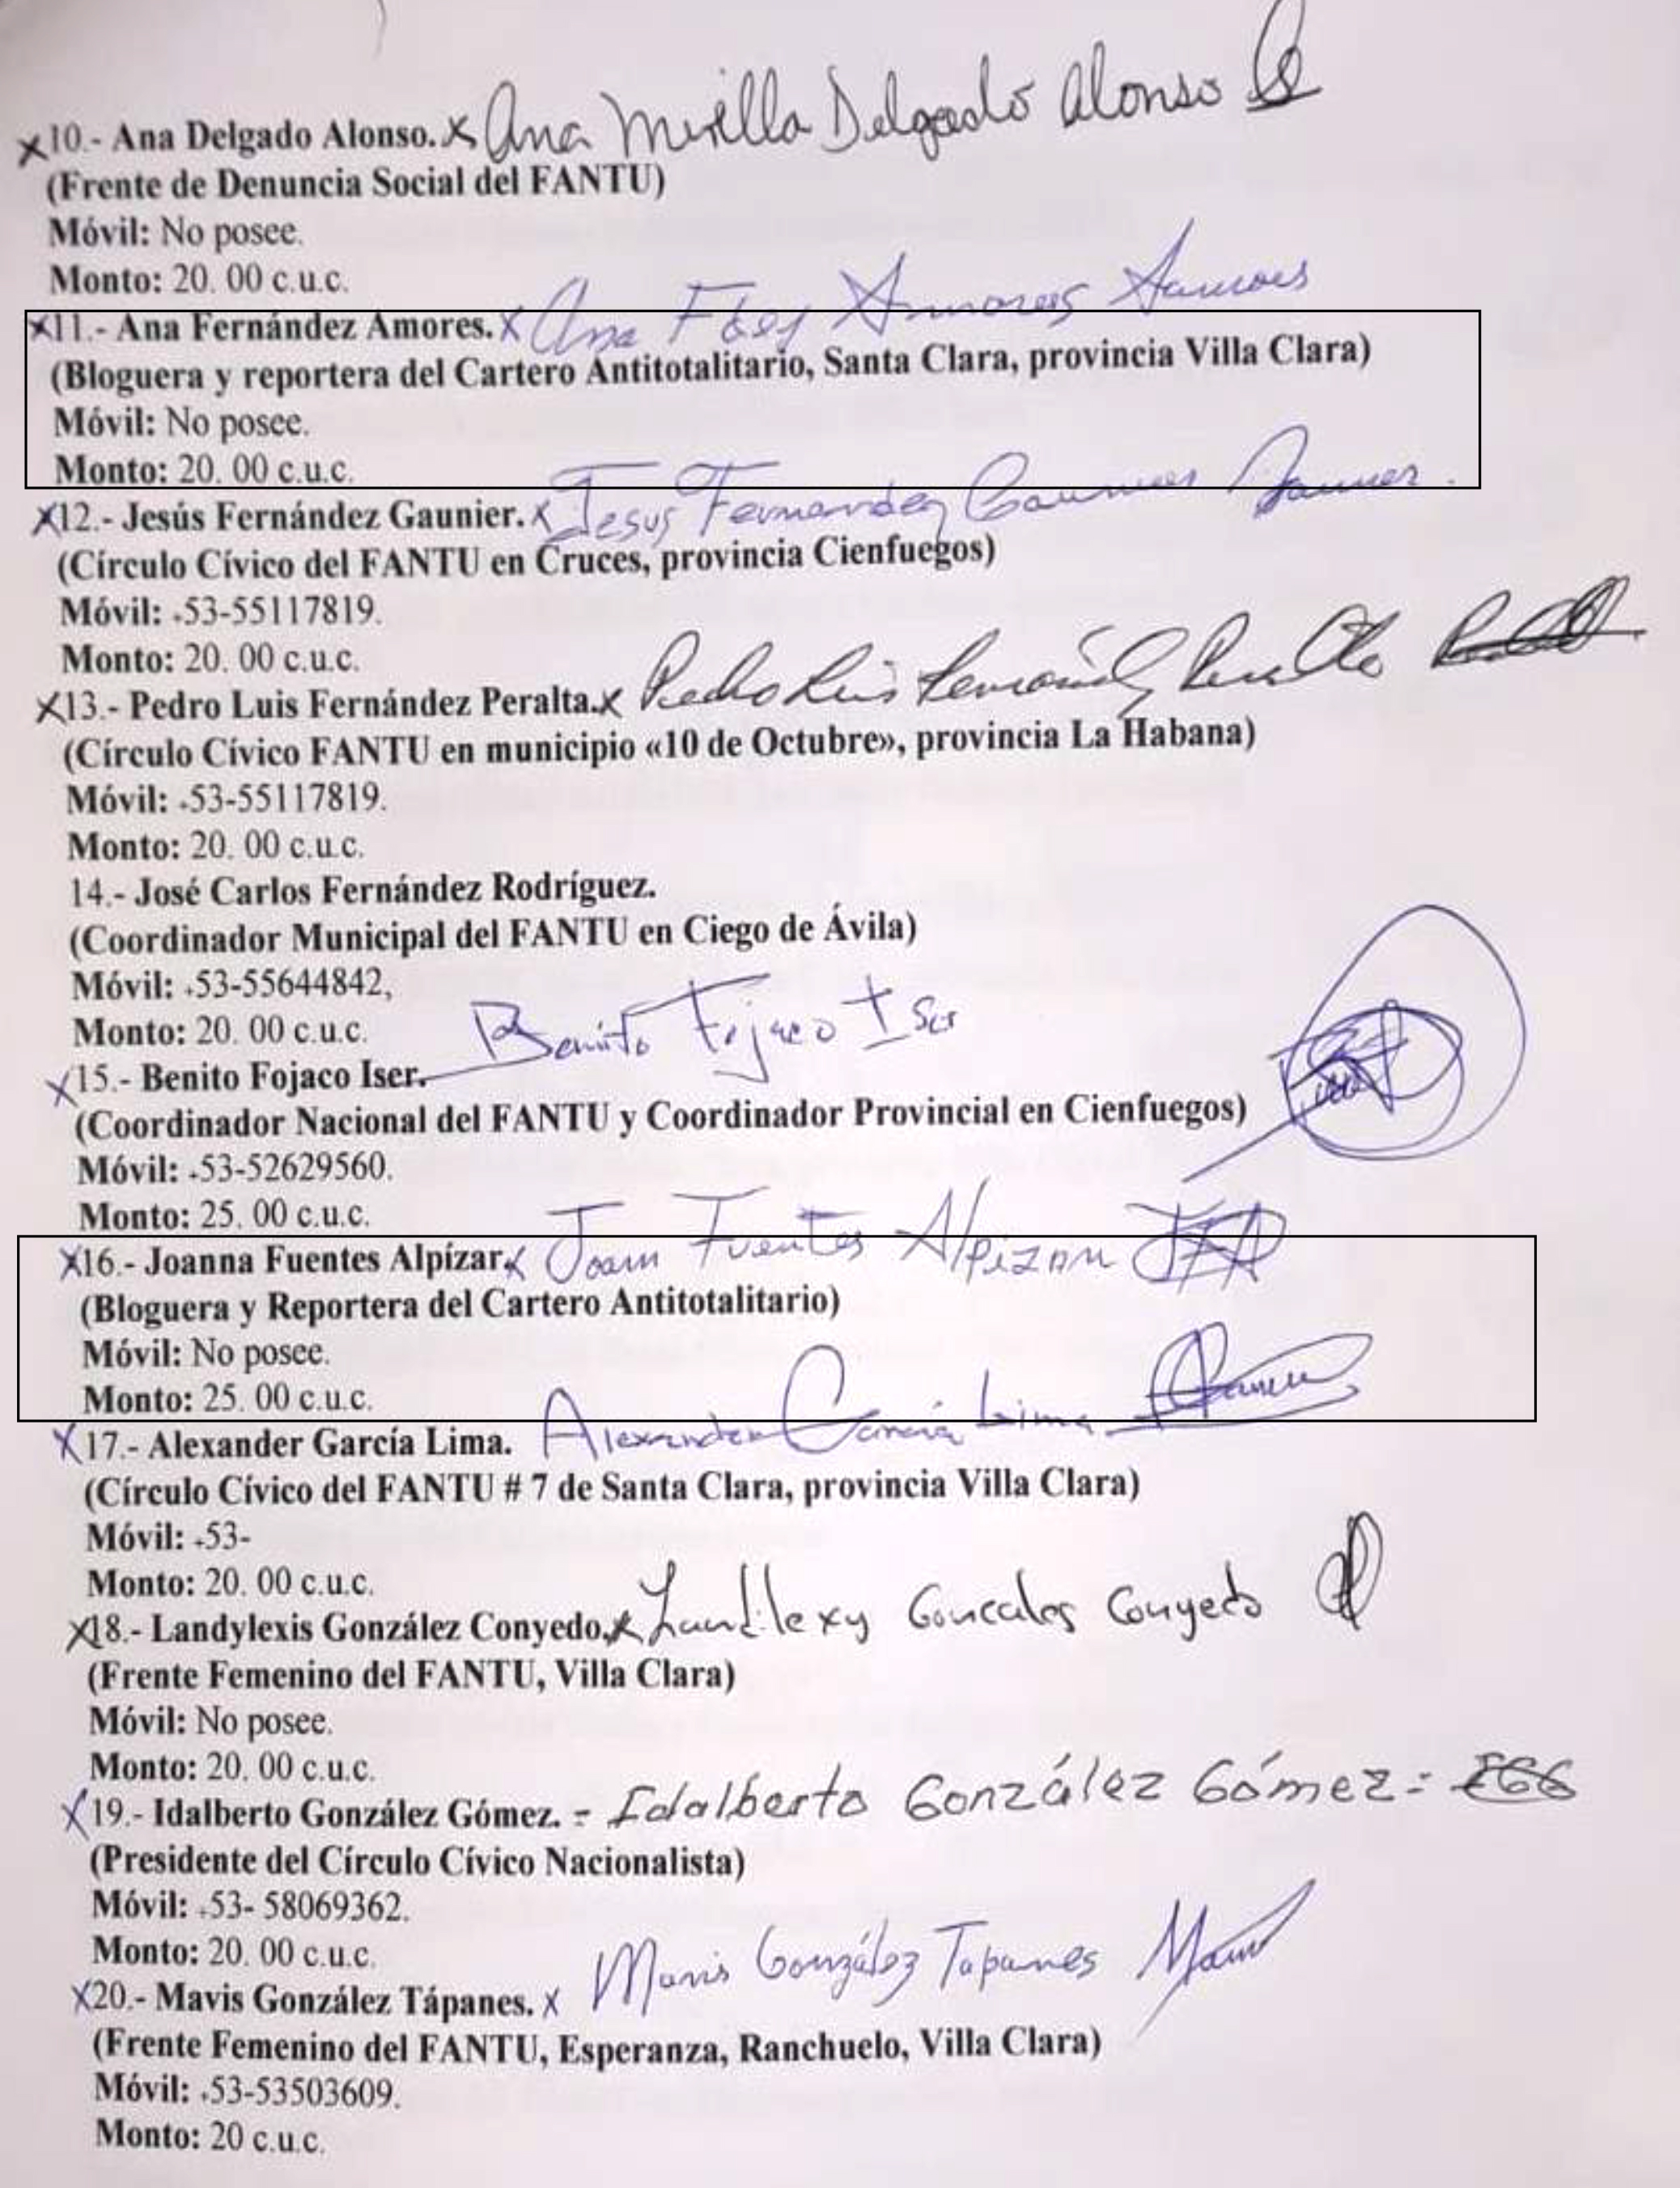 x10.- Ana Delgado Alonso. x Ana Mirilla Delgado Alonso
(Frente de Denuncia Social del FANTU)
Móvil: No posee.
Monto: 20. 00 c.u.c.
x11.- Ana Fernández Amores. x Ana Amores
(Bloguera y reportera del Cartero Antitotalitario, Santa Clara, provincia Villa Clara)
Móvil: No posee.
Monto: 20. 00 c.u.c.
x12.- Jesús Fernández Gaunier. x Jesus Fernandez
(Círculo Cívico del FANTU en Cruces, provincia Cienfuegos)
Móvil: +53-55117819.
Monto: 20. 00 c.u.c.
x13.- Pedro Luis Fernández Peralta. x Pedro Luis Fernández Peralta
(Círculo Cívico FANTU en municipio «10 de Octubre», provincia La Habana)
Móvil: +53-55117819.
Monto: 20. 00 c.u.c.
14.- José Carlos Fernández Rodríguez.
(Coordinador Municipal del FANTU en Ciego de Ávila)
Móvil: +53-55644842,
Monto: 20. 00 c.u.c.
x15.- Benito Fojaco Iser. Benito Fojaco Iser
(Coordinador Nacional del FANTU y Coordinador Provincial en Cienfuegos)
Móvil: +53-52629560.
Monto: 25. 00 c.u.c.
x16.- Joanna Fuentes Alpízar. x Joam Fuentes Alpizar JFA
(Bloguera y Reportera del Cartero Antitotalitario)
Móvil: No posee.
Monto: 25. 00 c.u.c.
x17.- Alexander García Lima. Alexander García Lima
(Círculo Cívico del FANTU # 7 de Santa Clara, provincia Villa Clara)
Móvil: +53-
Monto: 20. 00 c.u.c.
x18.- Landylexis González Conyedo. x Landilexy Goncales Conyedo
(Frente Femenino del FANTU, Villa Clara)
Móvil: No posee.
Monto: 20. 00 c.u.c.
x19.- Idalberto González Gómez. = Idalberto González Gómez = IGG
(Presidente del Círculo Cívico Nacionalista)
Móvil: +53- 58069362.
Monto: 20. 00 c.u.c.
x20.- Mavis González Tápanes. x Mavis González Tapanes
(Frente Femenino del FANTU, Esperanza, Ranchuelo, Villa Clara)
Móvil: +53-53503609.
Monto: 20 c.u.c.